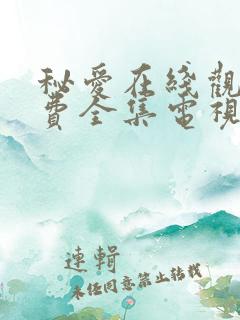 秘愛在綫觀
費全集電視
連輯
未任同意禁止转载